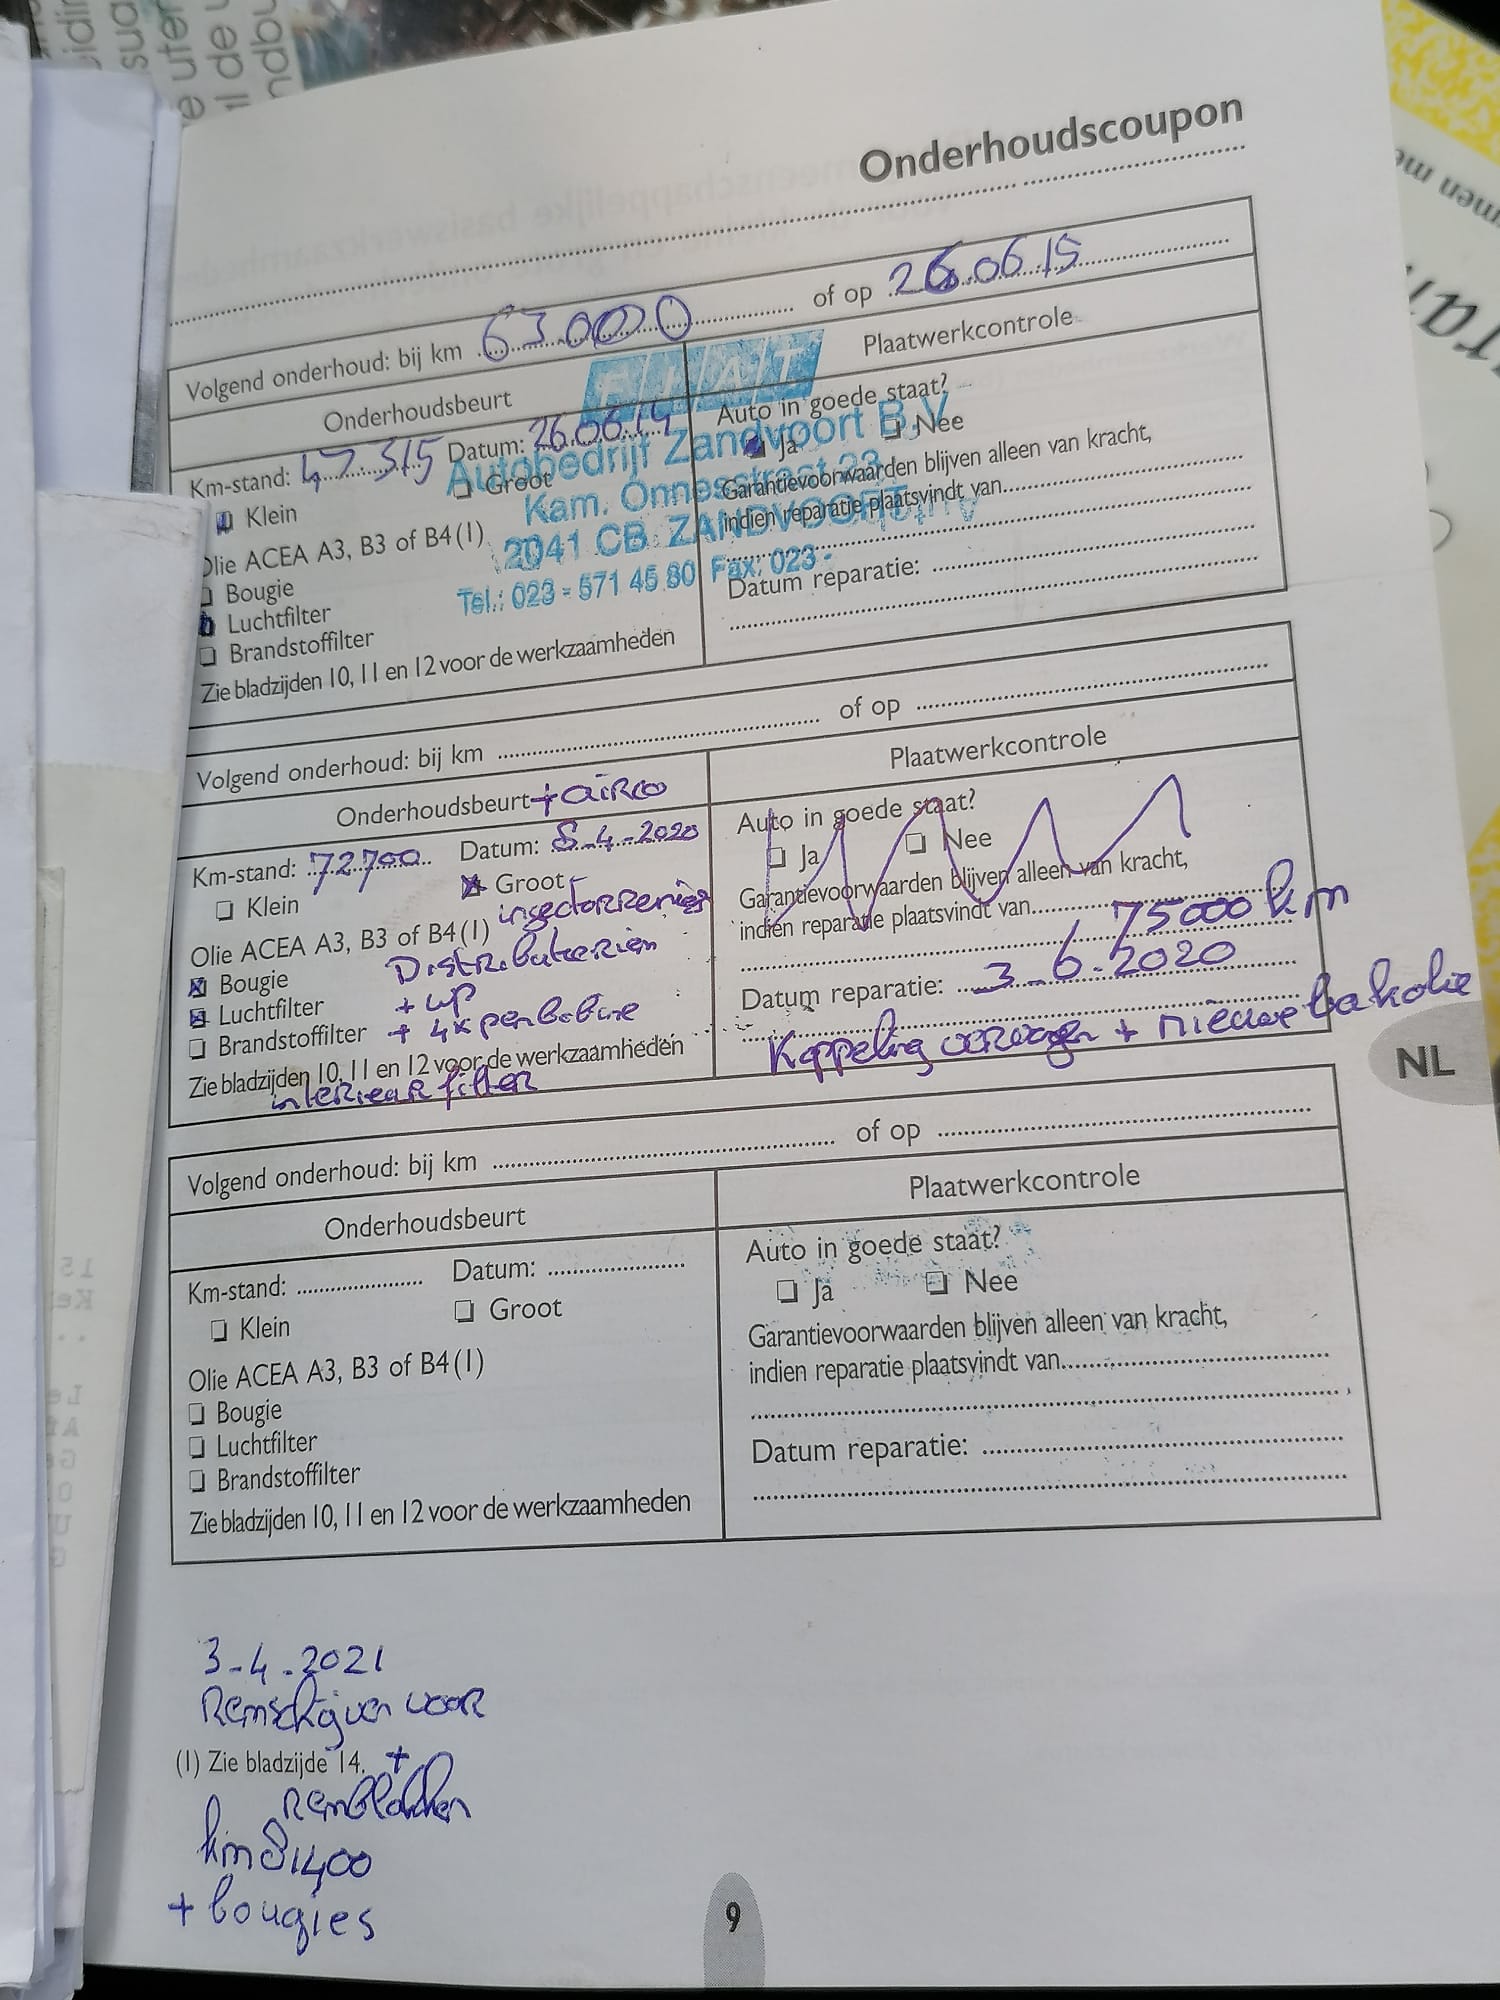 Onderhoudscoupon
Volgend onderhoud: bij km 63.000 of op 26.06.15
Onderhoudsbeurt
Plaatwerkcontrole
FIAT
Autobedrijf Zandvoort B.V.
Kam. Onnesstraat 23
2041 CB ZANDVOORT
Tel.: 023 - 571 45 80 Fax: 023 -
Km-stand: 47.315 Datum: 26.06.14
Klein
Groot
Olie ACEA A3, B3 of B4(1)
Bougie
Luchtfilter
Brandstoffilter
Zie bladzijden 10, 11 en 12 voor de werkzaamheden
Auto in goede staat?
Ja
Nee
Garantievoorwaarden blijven alleen van kracht,
indien reparatie plaatsvindt van
Datum reparatie:
Volgend onderhoud: bij km of op
Onderhoudsbeurt + airco
Plaatwerkcontrole
Km-stand: 72700 Datum: 8-4-2020
Klein
Groot
Olie ACEA A3, B3 of B4(1)
Distributieriem
Bougie
Luchtfilter + WP
Brandstoffilter + 4x penbobine
Zie bladzijden 10, 11 en 12 voor de werkzaamheden
interieur filter
Auto in goede staat?
Ja
Nee
Garantievoorwaarden blijven alleen van kracht,
indien reparatie plaatsvindt van 75000 km
Datum reparatie: 3-6-2020
Koppeling vervangen + nieuwe bakolie
NL
Volgend onderhoud: bij km of op
Onderhoudsbeurt
Plaatwerkcontrole
Km-stand: Datum:
Klein
Groot
Olie ACEA A3, B3 of B4(1)
Bougie
Luchtfilter
Brandstoffilter
Zie bladzijden 10, 11 en 12 voor de werkzaamheden
Auto in goede staat?
Ja
Nee
Garantievoorwaarden blijven alleen van kracht,
indien reparatie plaatsvindt van
Datum reparatie:
3-4-2021
Remschijven voor
(1) Zie bladzijde 14. +
Remblokken
km 81400
+ bougies
9